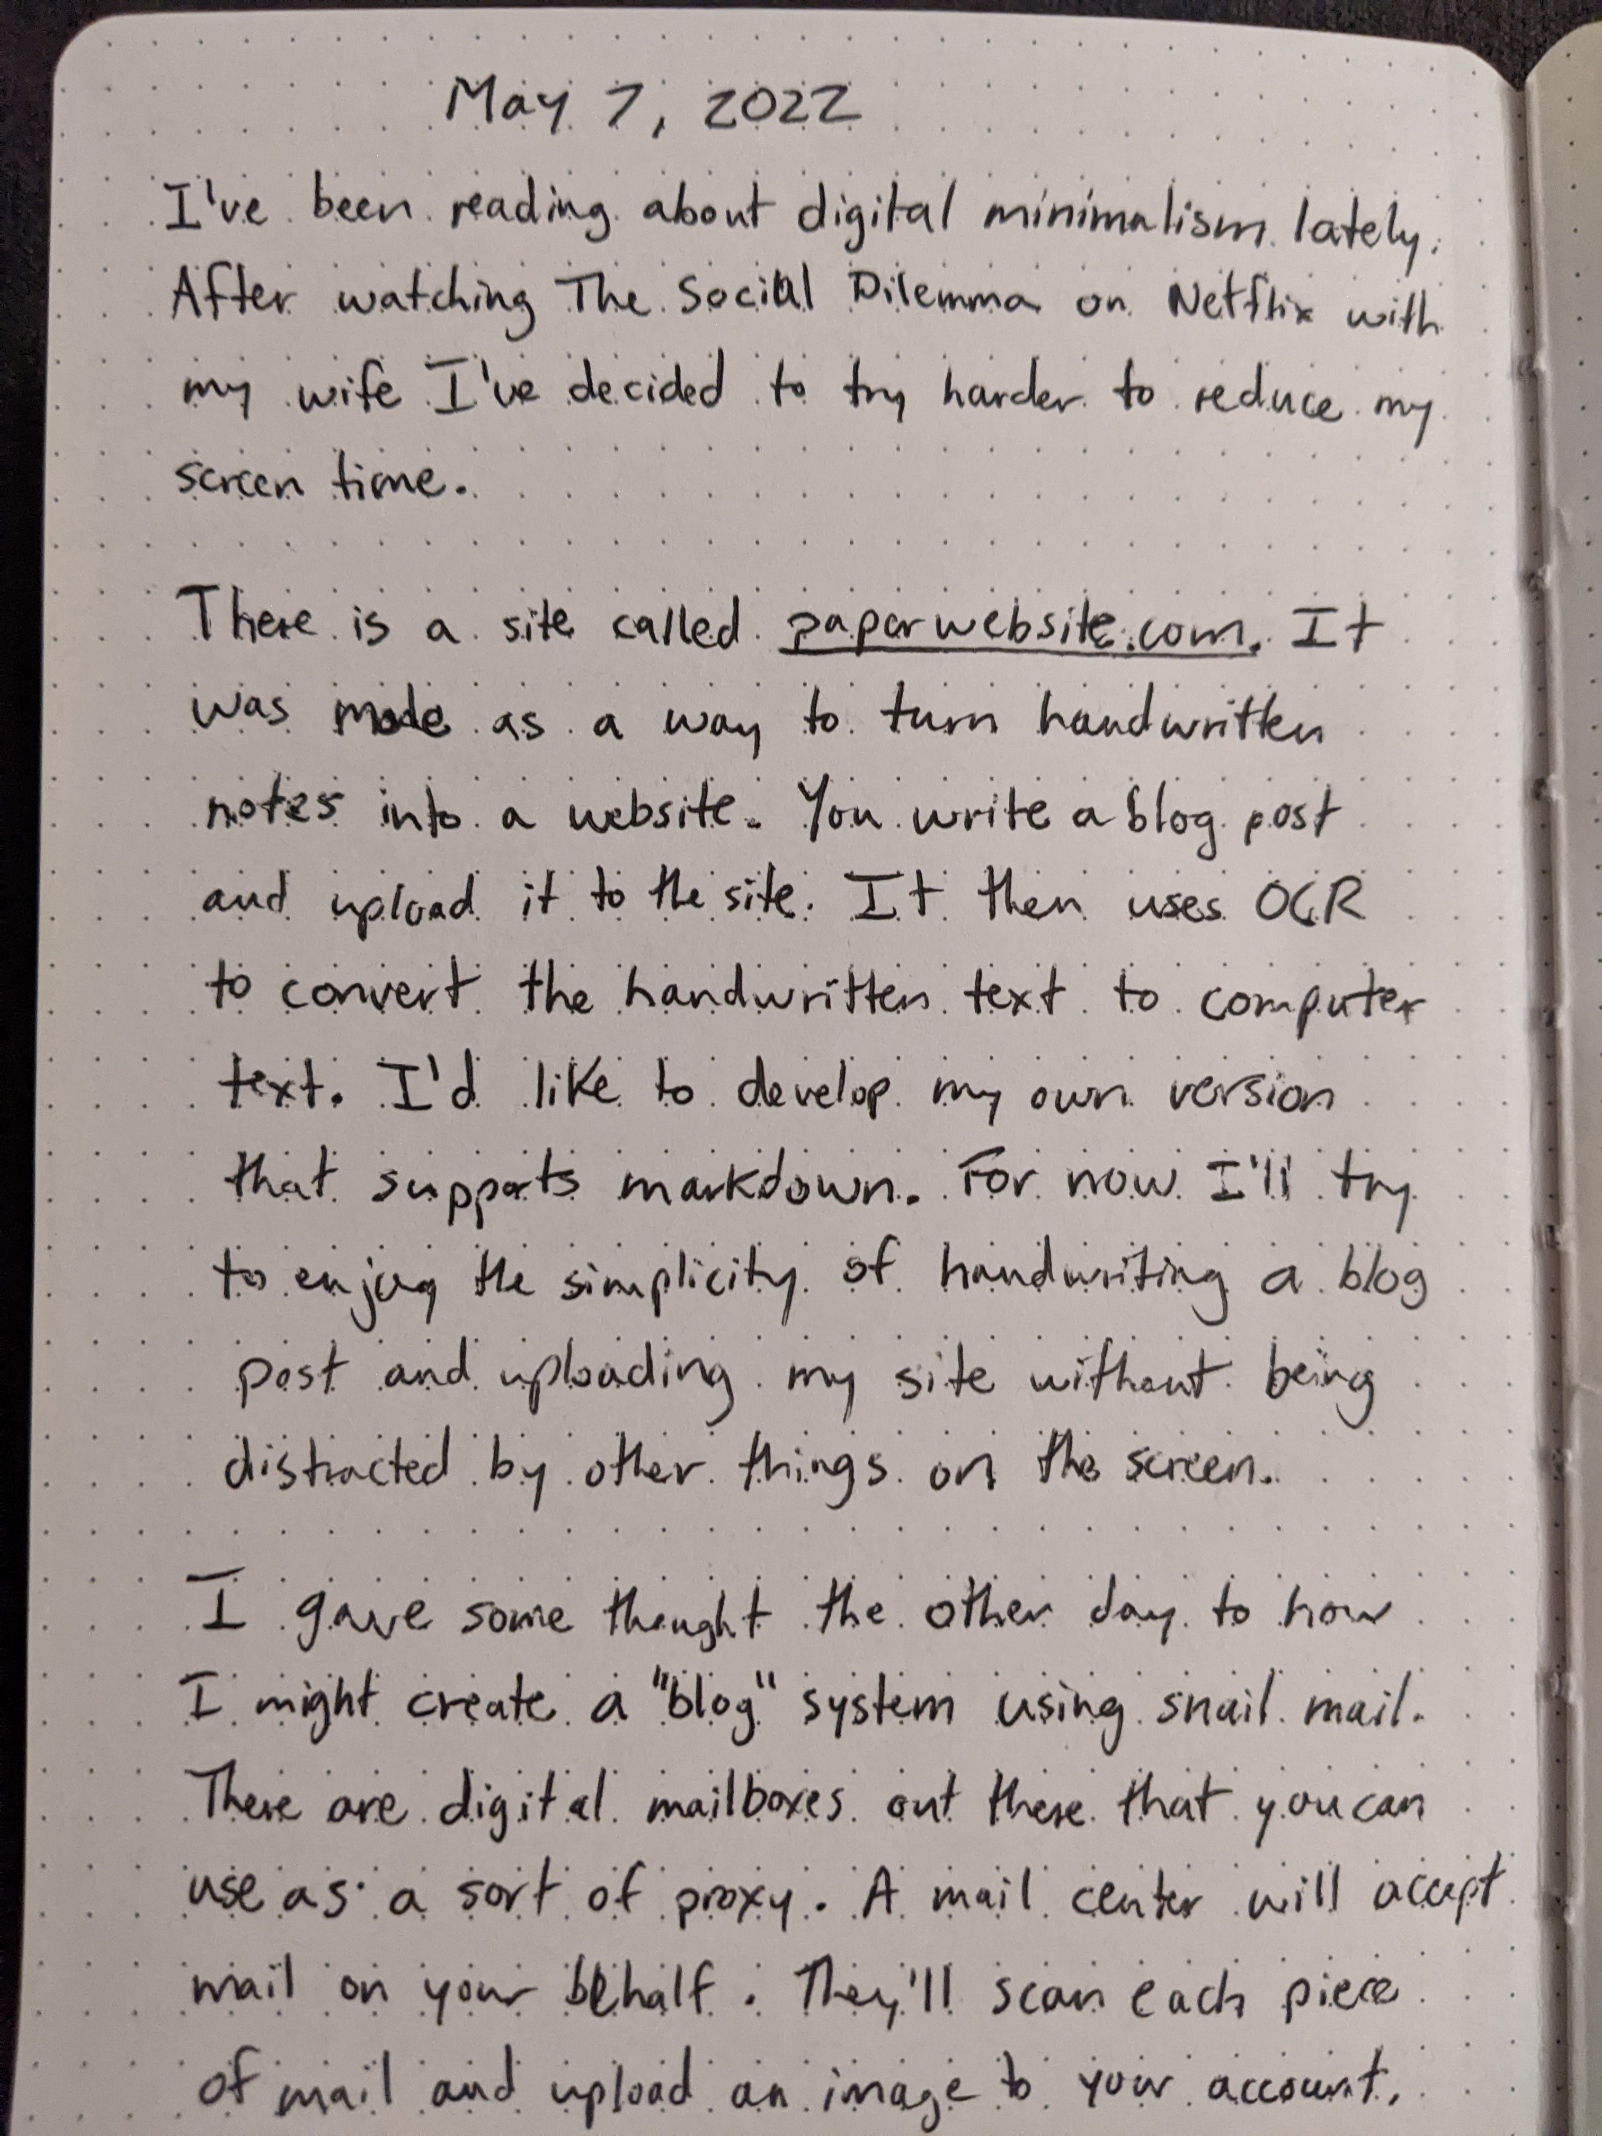 May 7, 2022
I've been reading about digital minimalism lately.
After watching The Social Dilemma on Netflix with
my wife I've decided to try harder to reduce my
screen time.
There is a site called paperwebsite.com. It
was made as a way to turn handwritten
notes into a website. You write a blog post
and upload it to the site. It then uses OCR
to convert the handwritten text to computer
text. I'd like to develop my own version
that supports markdown. For now I'll try
to enjoy the simplicity of handwriting a blog
post and uploading my site without being
distracted by other things on the screen.
I gave some thought the other day to how
I might create a "blog" system using snail mail.
There are digital mailboxes out there that you can
use as a sort of proxy. A mail center will accept
mail on your behalf. They'll scan each piece
of mail and upload an image to your account.